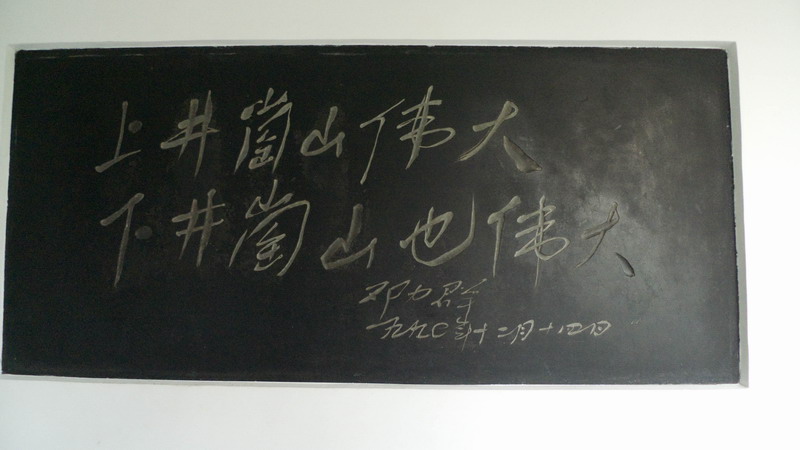 上井崗山伟大
下井崗山也伟大
邓力群
一九九〇年十二月十四日